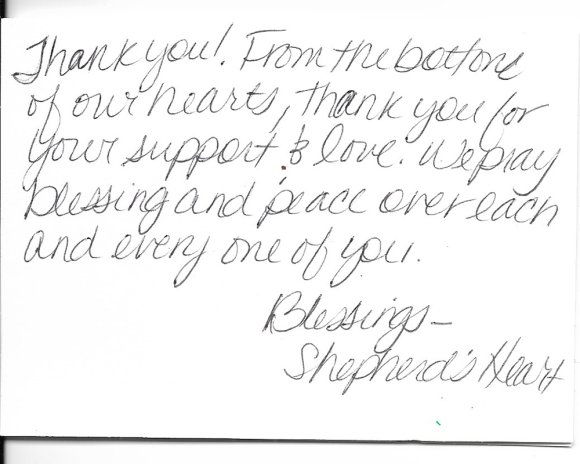 Thank you! From the bottom
of our hearts, thank you for
your support & love. We pray
blessing and peace over each
and every one of you.
Blessings-
Shepherd's Heart